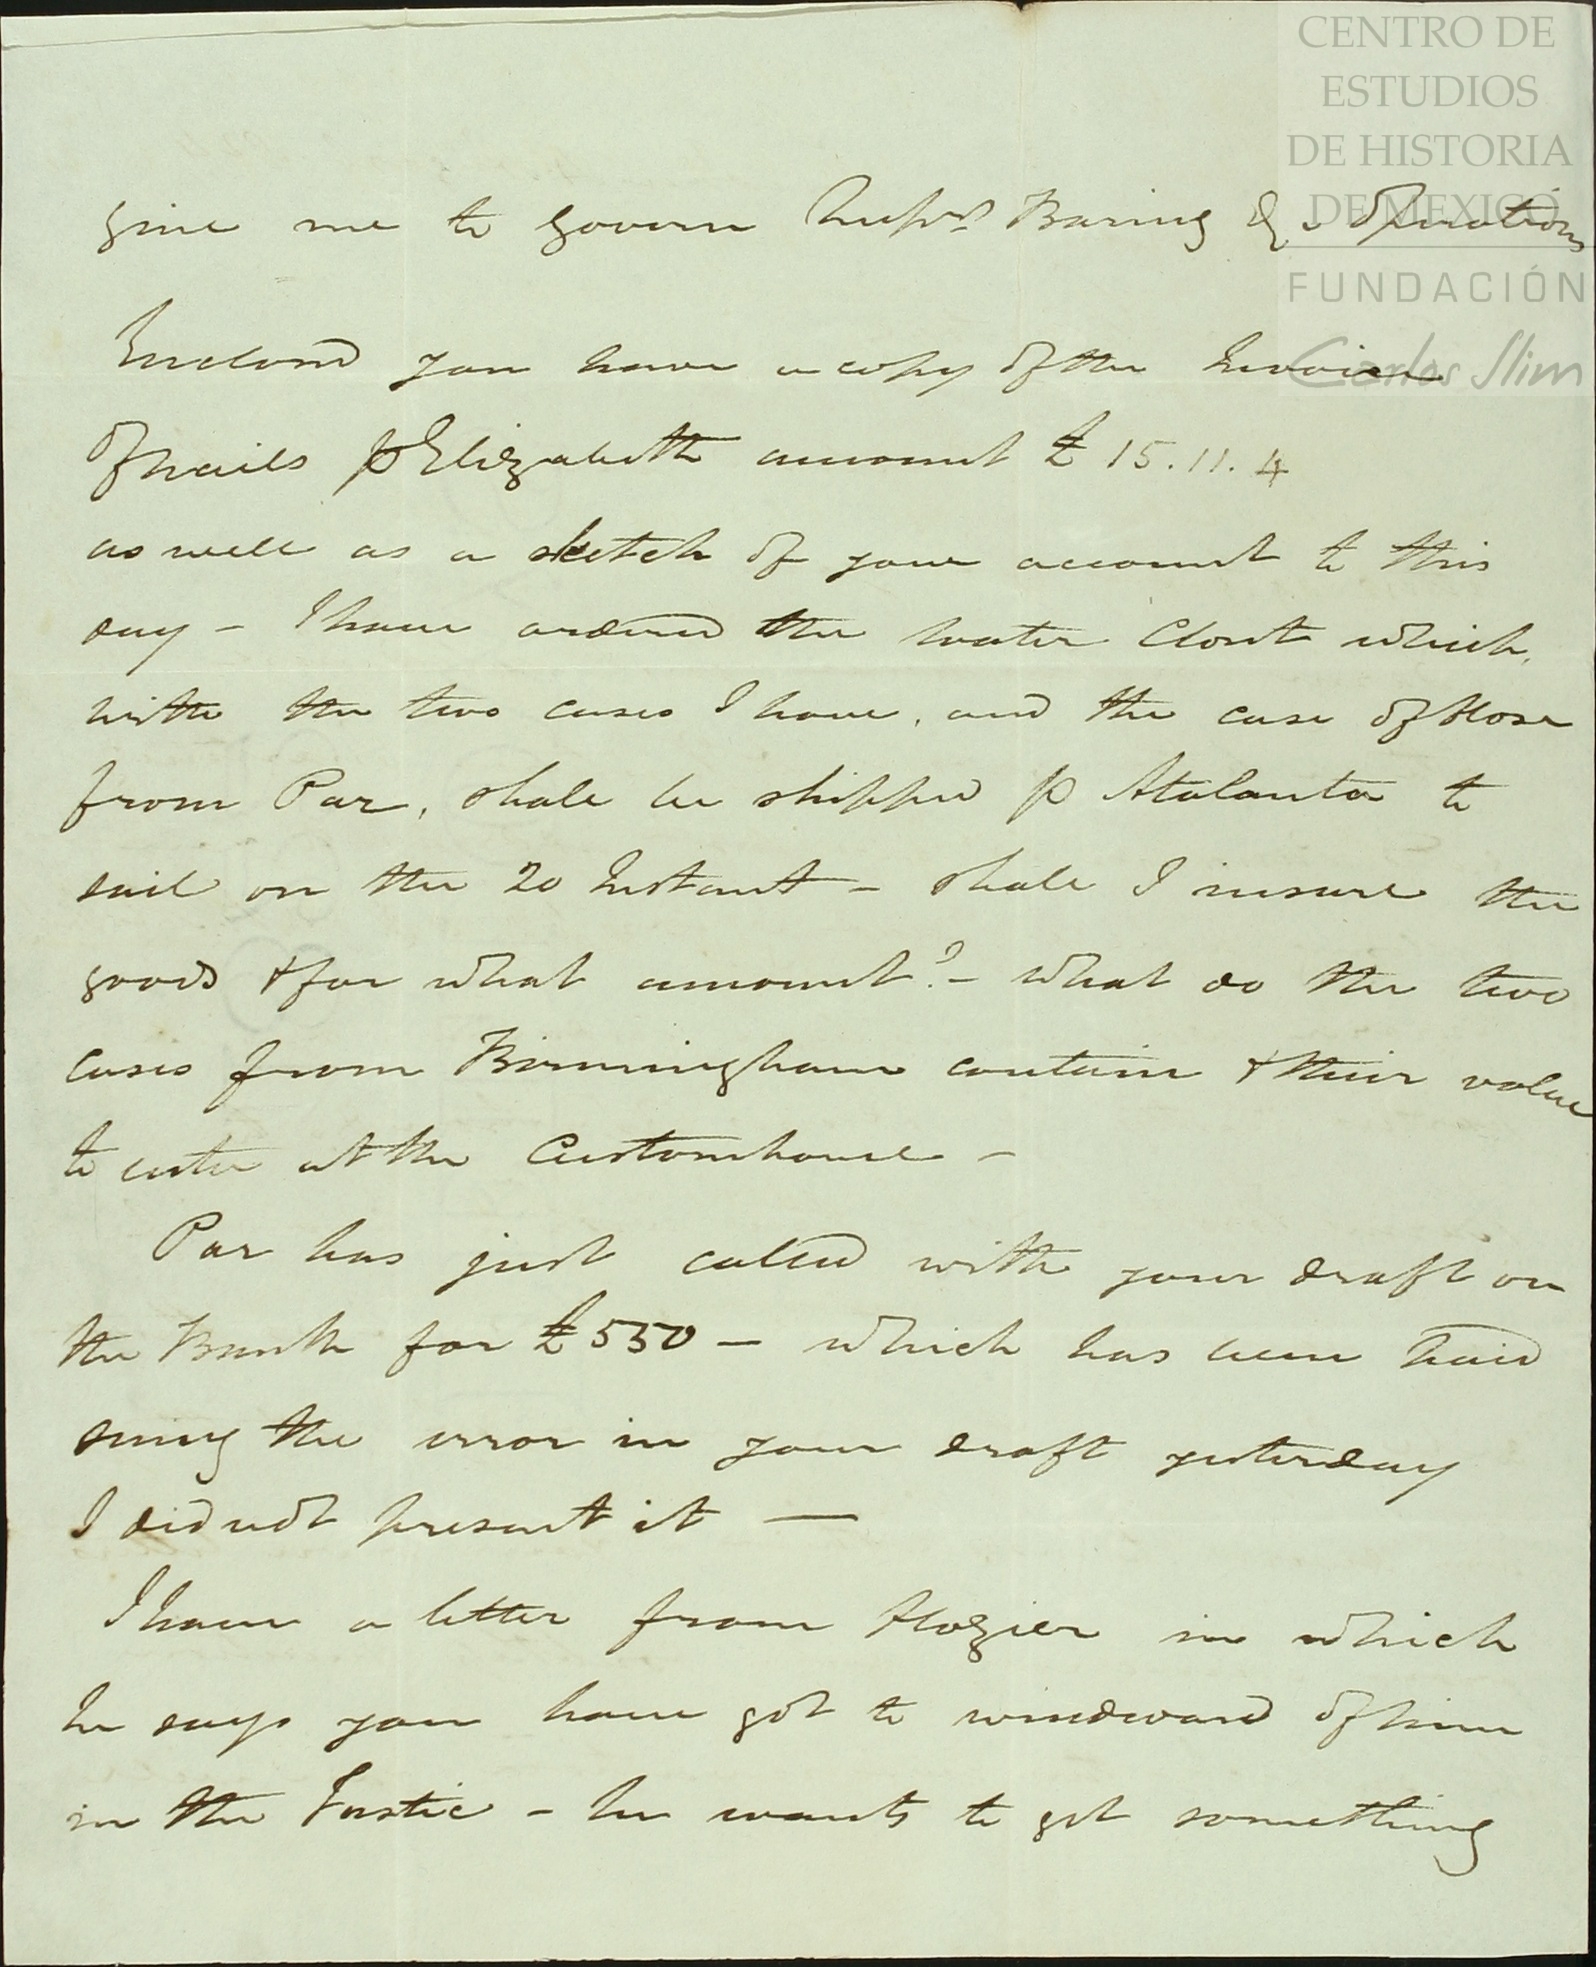 CENTRO DE
ESTUDIOS
DE HISTORIA
DE MEXICO
FUNDACIÓN
Carlos Slim
give me to govern Mess.rs Baring & operations
Enclosed you have a copy of the Invoice
of nails p Elizabeth amount £ 15.11.4
as well as a sketch of your account to this
day - I have ordered the water Closet which,
with the two cases I have, and the case of Hose
from Par, shall be shipped p Atalanta to
sail on the 20 Instant - shall I insure the
goods & for what amount? - what do the two
cases from Birmingham contain & their value
to enter at the Customhouse -
Par has just called with your draft on
the Bank for £550 - which has been paid
seeing the error in your draft yesterday
I did not present it —
I have a letter from Hozier in which
he says you have got to windward of him
in the Fustic - he wants to get something